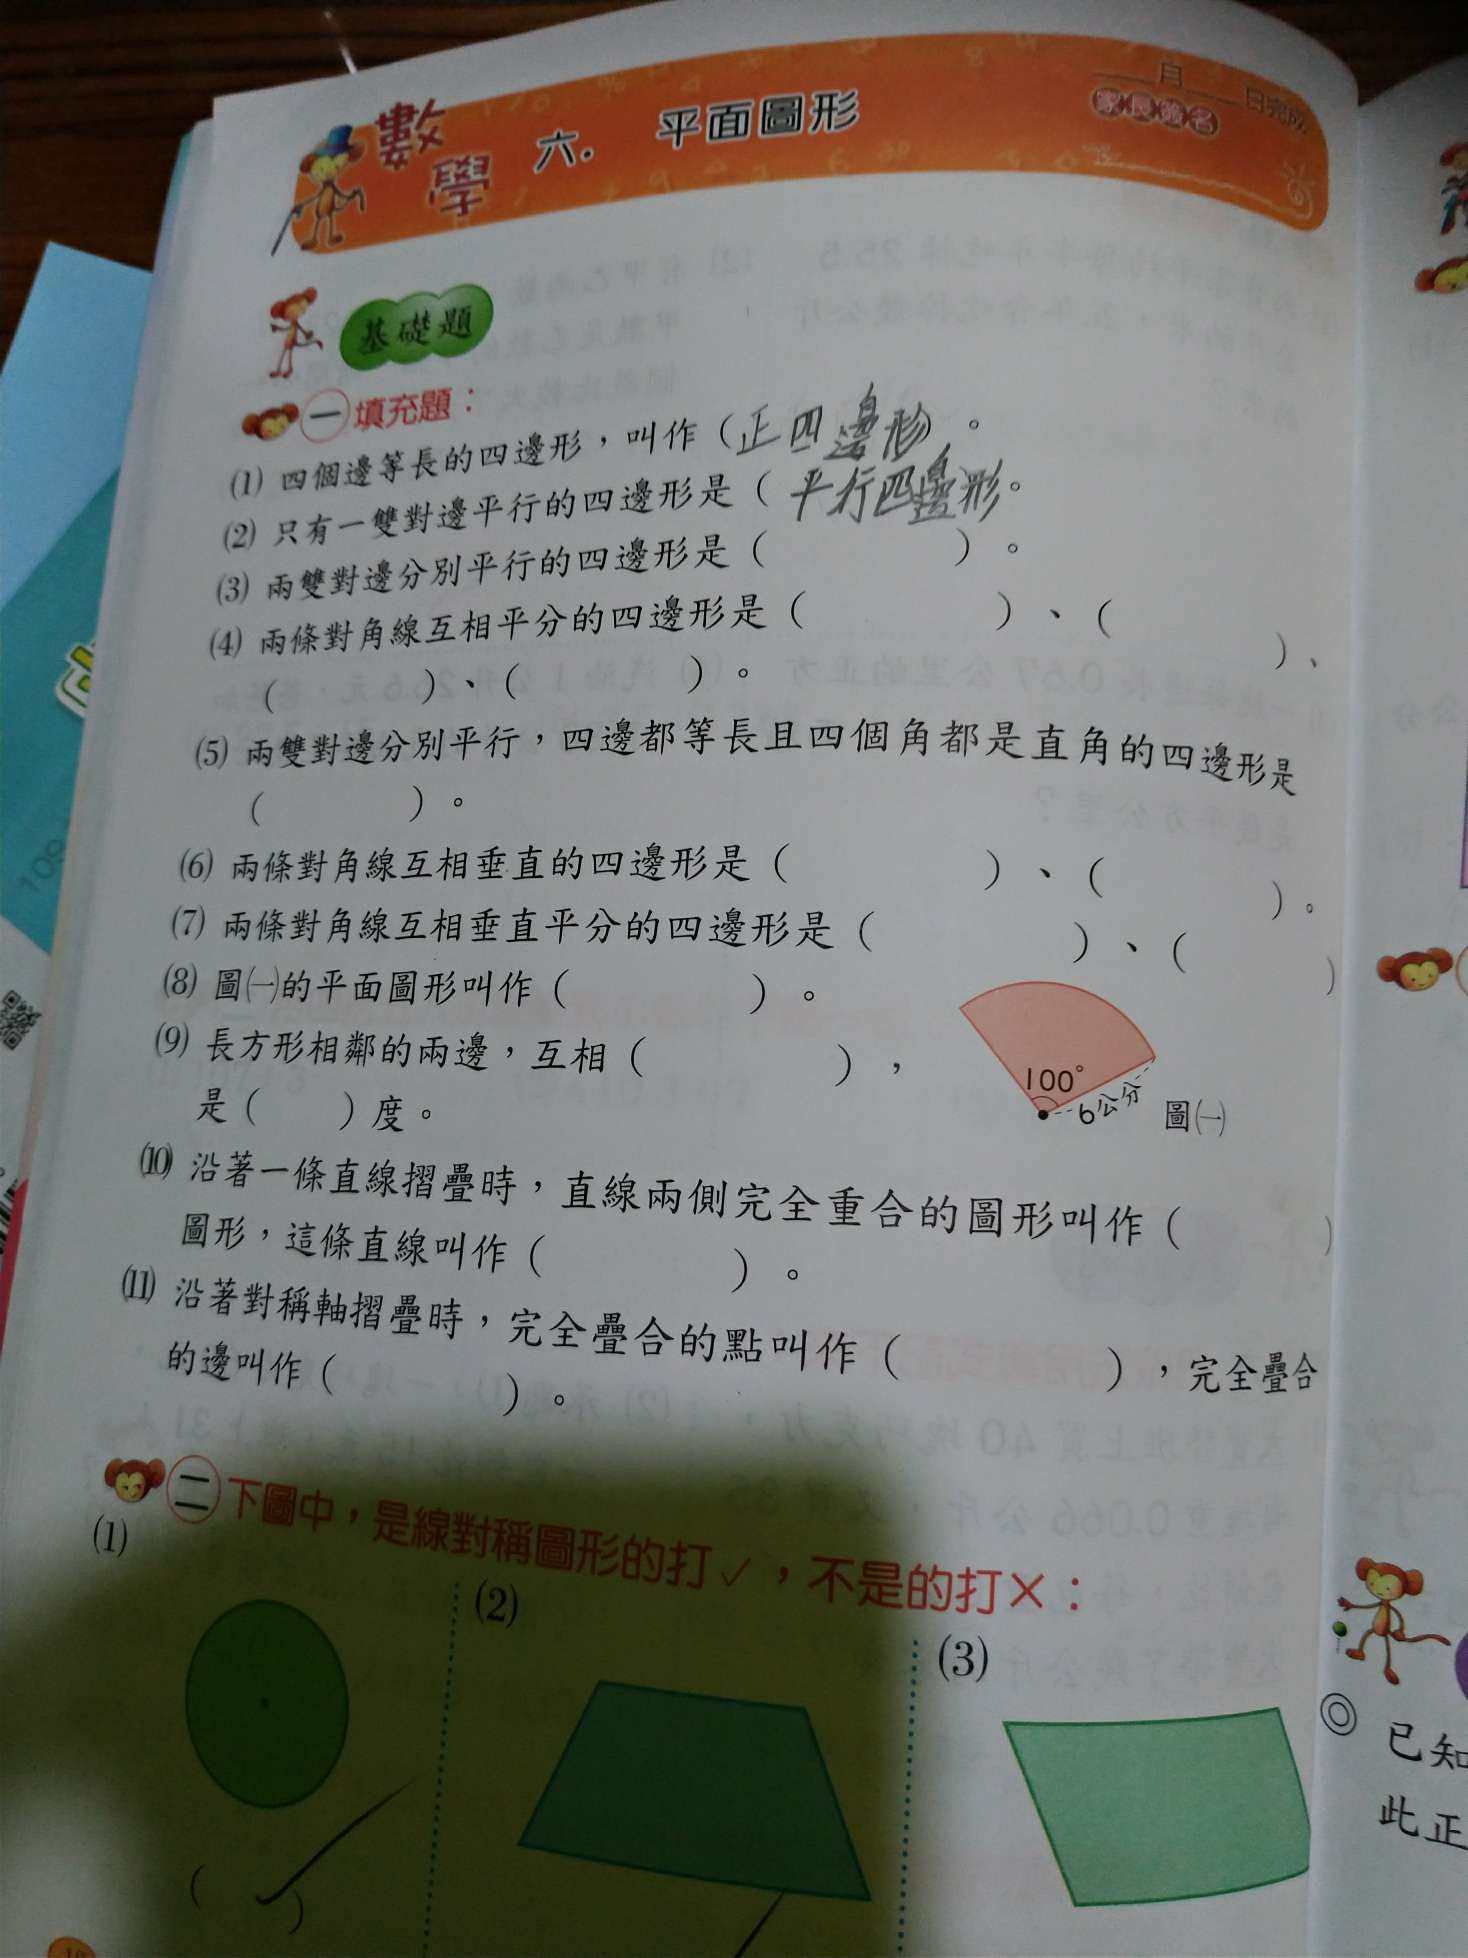 數學
六． 平面圖形
月 日完成
家長簽名
基礎題
一 填充題：
⑴ 四個邊等長的四邊形，叫作（正四邊形）。
⑵ 只有一雙對邊平行的四邊形是（平行四邊形。
⑶ 兩雙對邊分別平行的四邊形是（ ）。
⑷ 兩條對角線互相平分的四邊形是（ ）、（ ）、
（ ）、（ ）。
⑸ 兩雙對邊分別平行，四邊都等長且四個角都是直角的四邊形是
（ ）。
⑹ 兩條對角線互相垂直的四邊形是（ ）、（ ）。
⑺ 兩條對角線互相垂直平分的四邊形是（ ）、（ ）
⑻ 圖㈠的平面圖形叫作（ ）。
⑼ 長方形相鄰的兩邊，互相（ ），
是（ ）度。
100°
6公分
圖㈠
⑽ 沿著一條直線摺疊時，直線兩側完全重合的圖形叫作（ ）
圖形，這條直線叫作（ ）。
⑾ 沿著對稱軸摺疊時，完全疊合的點叫作（ ），完全疊合
的邊叫作（ ）。
二 下圖中，是線對稱圖形的打✓，不是的打×：
⑴
⑵
⑶
（ ✓ ）
◎ 已知
此正